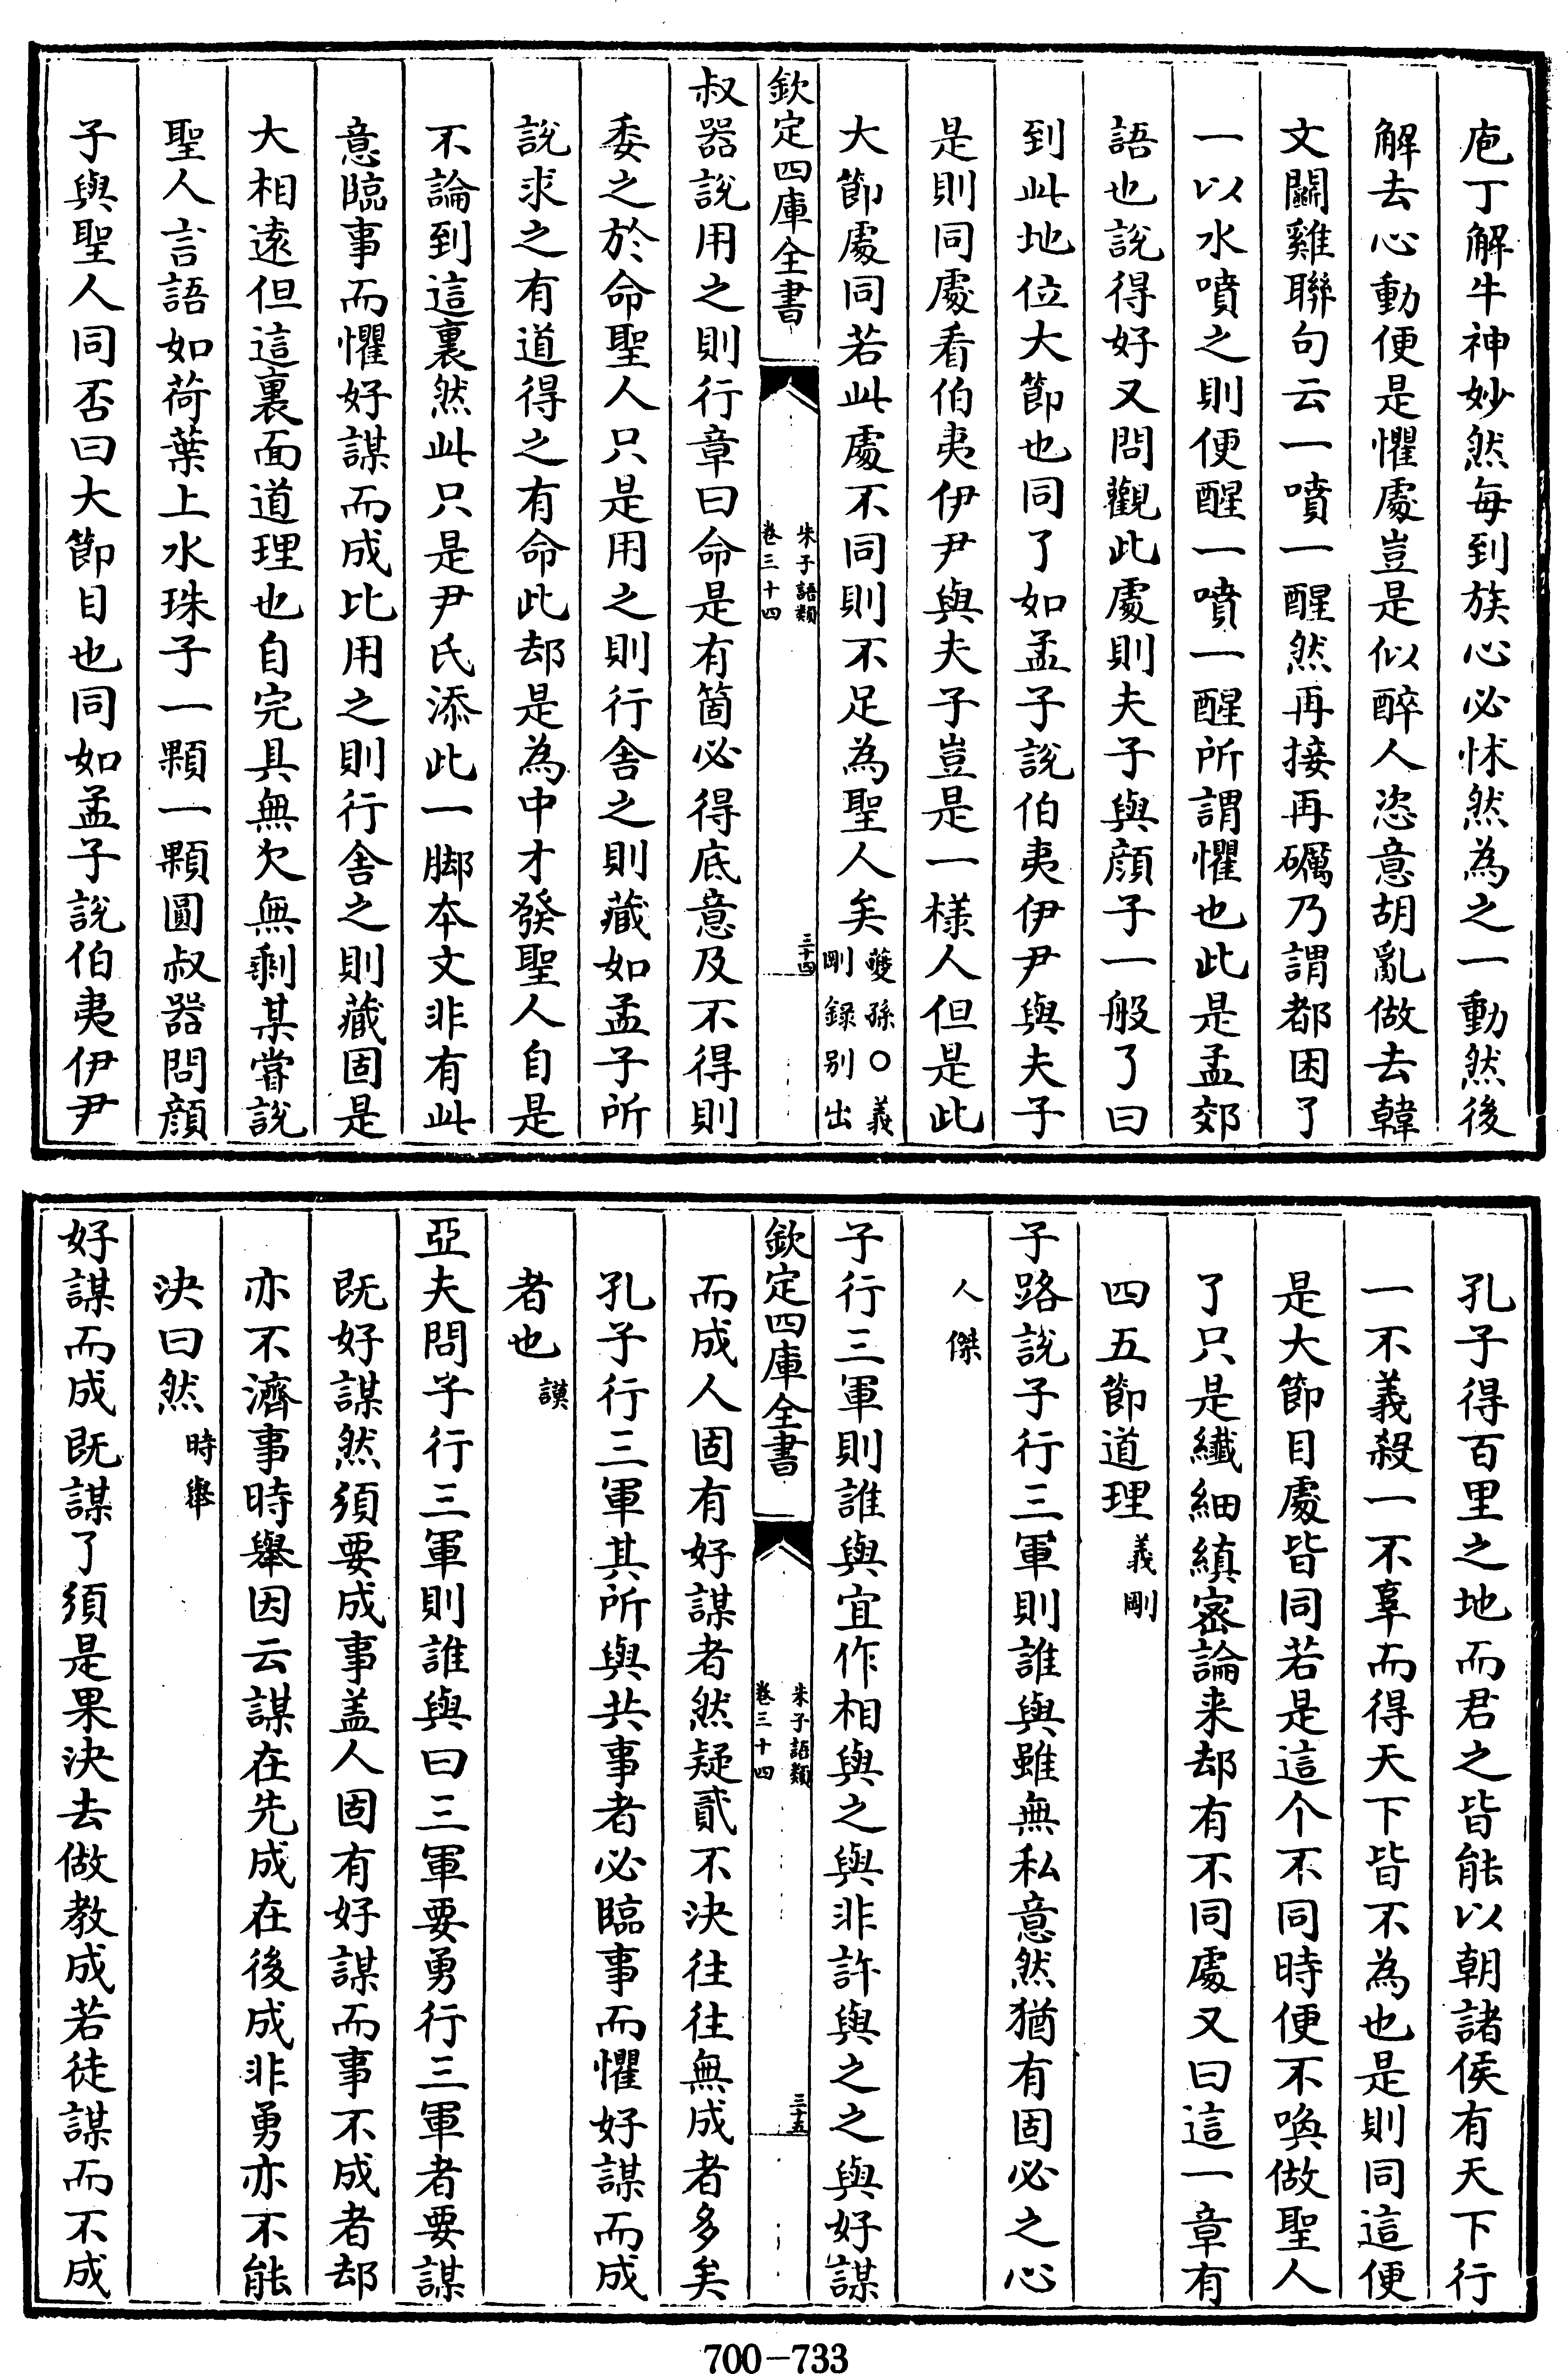 庖丁解牛神妙然每到族心必怵然為之一動然後
解去心動便是懼處豈是似醉人恣意胡亂做去韓
文鬬雞聯句云一噴一醒然再接再礪乃謂都困了
一以水噴之則便醒一噴一醒所謂懼也此是孟郊
語也說得好又問觀此處則夫子與顔子一般了曰
到此地位大節也同了如孟子說伯夷伊尹與夫子
是則同處看伯夷伊尹與夫子豈是一様人但是此
大節處同若此處不同則不足為聖人矣夔孫○義
剛録别出
欽定四庫全書
朱子語類
卷三十四
三十四
叔器說用之則行章曰命是有箇必得底意及不得則
委之於命聖人只是用之則行舍之則藏如孟子所
說求之有道得之有命此却是為中才發聖人自是
不論到這裏然此只是尹氏添此一脚本文非有此
意臨事而懼好謀而成比用之則行舍之則藏固是
大相遠但這裏面道理也自完具無欠無剩某嘗說
聖人言語如荷葉上水珠子一顆一顆圓叔器問顔
子與聖人同否曰大節目也同如孟子說伯夷伊尹
孔子得百里之地而君之皆能以朝諸侯有天下行
一不義殺一不辜而得天下皆不為也是則同這便
是大節目處皆同若是這个不同時便不喚做聖人
了只是纎細縝宻論来却有不同處又曰這一章有
四五節道理義剛
子路說子行三軍則誰與雖無私意然猶有固必之心
人傑
子行三軍則誰與宜作相與之與非許與之之與好謀
欽定四庫全書
朱子語類
卷三十四
三十五
而成人固有好謀者然疑貳不決往往無成者多矣
孔子行三軍其所與共事者必臨事而懼好謀而成
者也謨
亞夫問子行三軍則誰與曰三軍要勇行三軍者要謀
既好謀然須要成事盖人固有好謀而事不成者却
亦不濟事時舉因云謀在先成在後成非勇亦不能
決曰然時舉
好謀而成既謀了須是果決去做教成若徒謀而不成
700-733